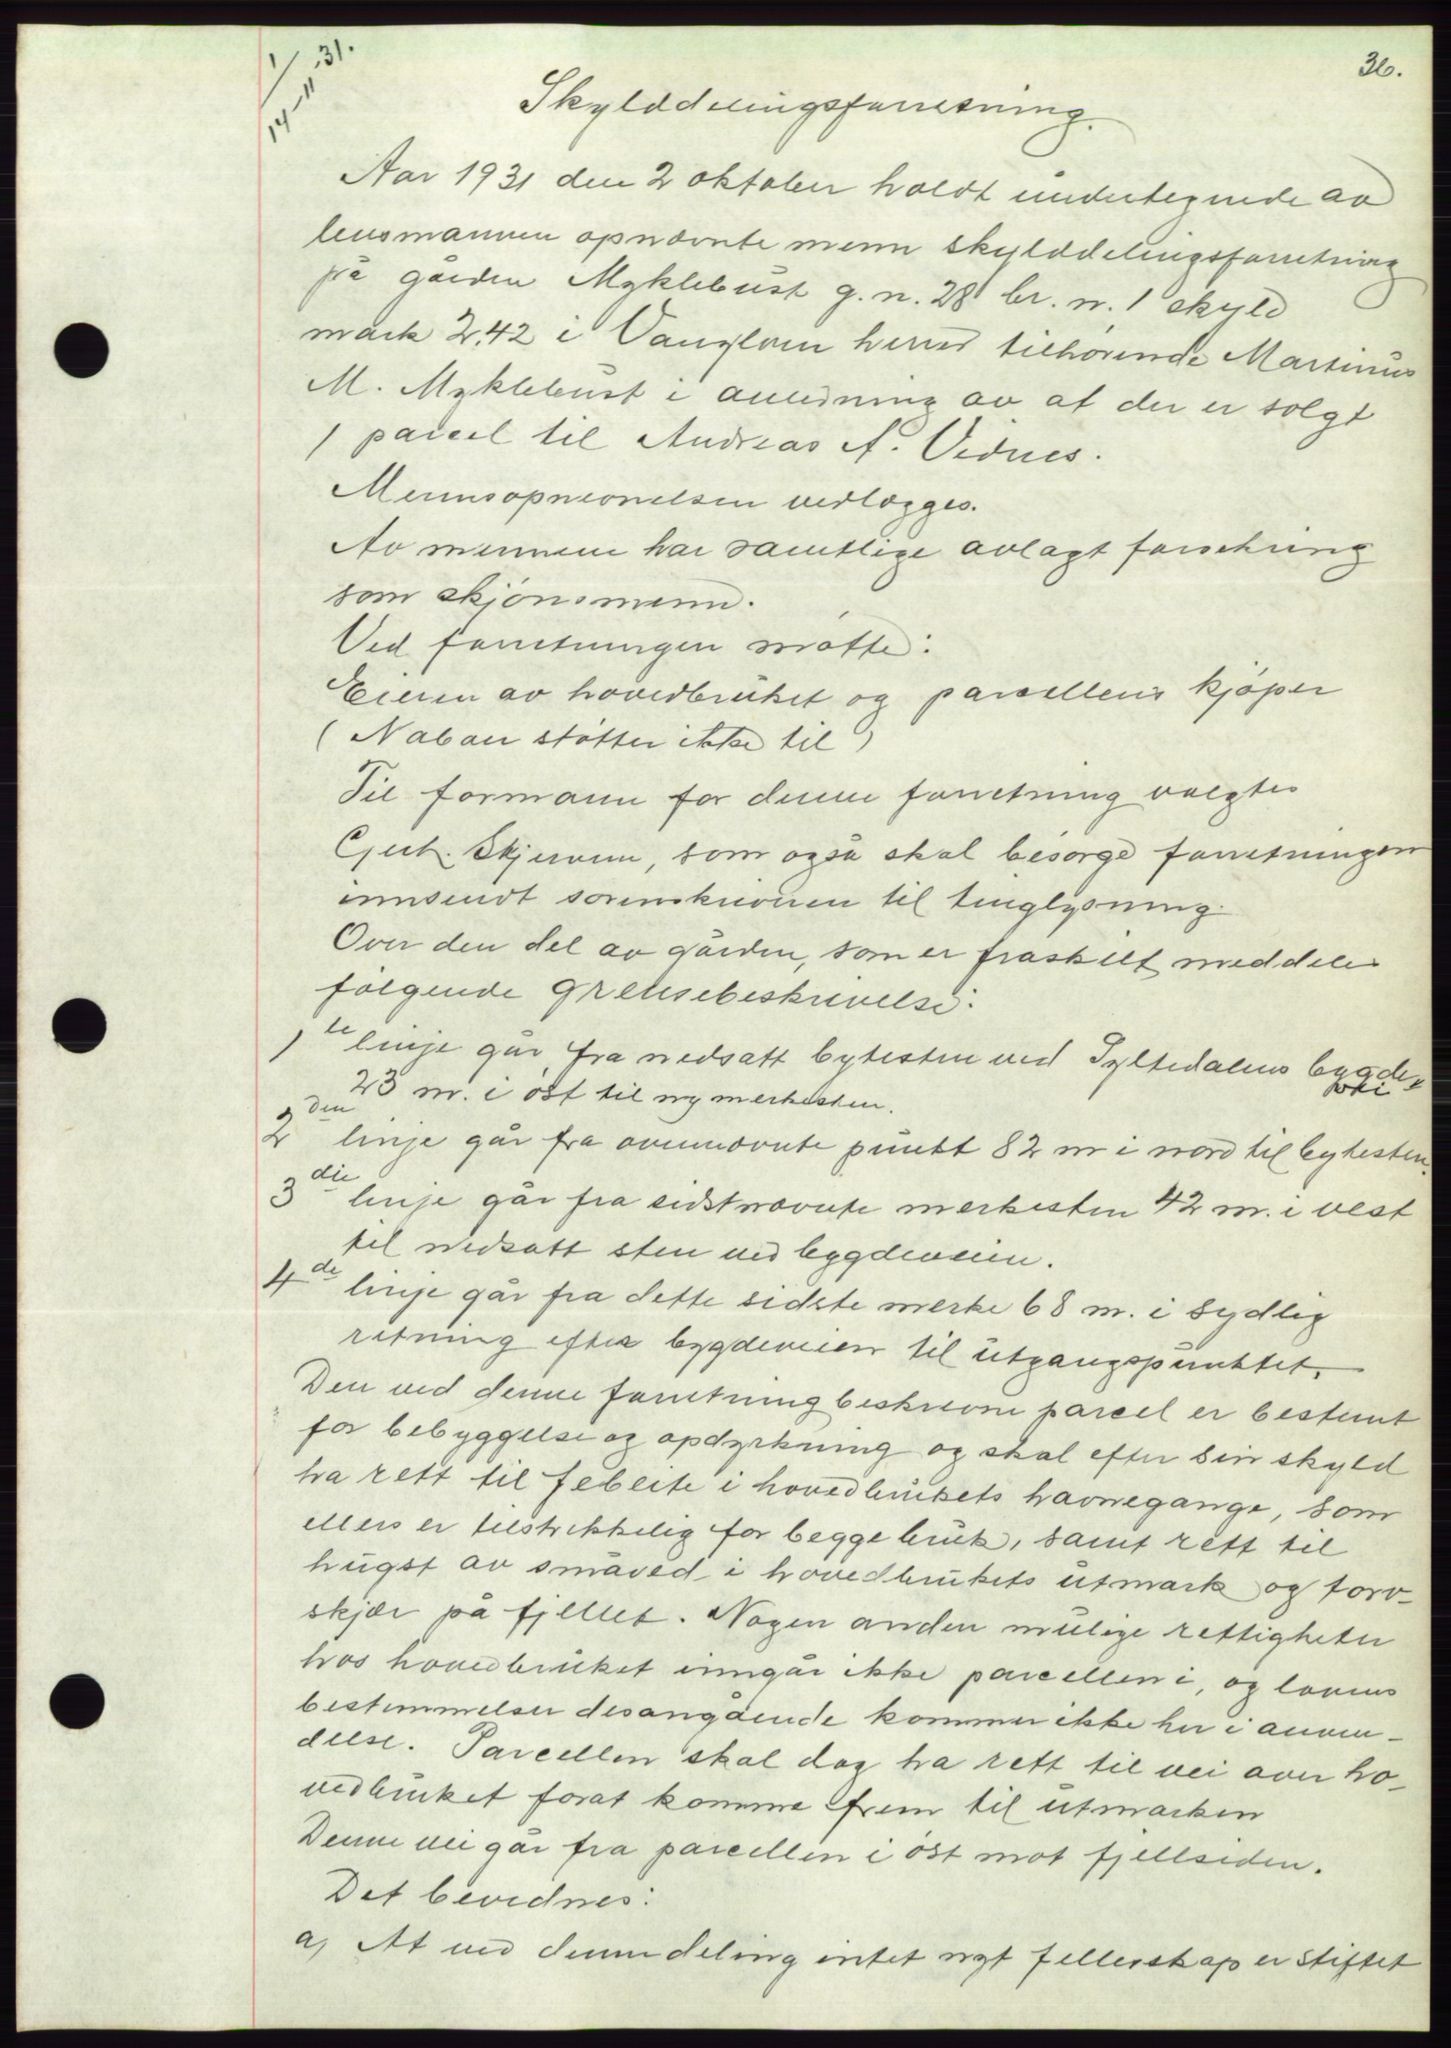 1/14-11-31.
36.
Skylddelingsforretning.
Aar 1931 den 2 oktober holdt undertegnede av
lensmannen opnevnte menn skylddelingsforretning
på gården Myklebust g.n. 28 br. n. 1 skyld
mark 2,42 i Vanylven herred tilhørende Martinus
M. Myklebust i anledning av at der er solgt
1 parcel til Andreas A. Vednes.
Mennsopnevnelsen vedlegges.
Av mennene har samtlige avlagt forsikring
som skjønsmenn.
Ved forretningen møtte:
Eieren av hovedbruket og parcellens kjøper
(Naboer støtter ikke til)
Til formann for denne forretning valgtes
Gert. Skjervem, som også skal besørge forretningen
innsendt sorenskriveren til tinglysning.
Over den del av gården, som er fraskilt meddeles
følgende grensebeskrivelse:
1te linje går fra nedsatt bytesten ved Syltedalens bygde-
vei
23 m. i øst til ny merkesten.
2den linje går fra ovennevnte punkt 82 m i nord til bytesten.
3die linje går fra sidstnevnte merkesten 42 m. i vest
til nedsatt sten ved bygdeveien.
4de linje går fra dette sidste merke 68 m. i sydlig
retning efter bygdeveien til utgangspunktet.
Den ved denne forretning beskrevne parcel er bestemt
for bebyggelse og opdyrkning og skal efter sin skyld
ha rett til febeite i hovedbrukets havnegange, som
ellers er tilstrekkelig for begge bruk, samt rett til
hugst av småved i hovedbrukets utmark og torv-
skjær på fjellet. Nogen anden mulige rettigheter
hos hovedbruket inngår ikke parcellen i, og lovens
bestemmelser desangående kommer ikke her i anven-
delse. Parcellen skal dog ha rett til vei over ho-
vedbruket forat komme frem til utmarken
Denne vei går fra parcellen i øst mot fjellsiden.
Det bevidnes:
a) At ved denne deling intet nyt fellesskap er stiftet